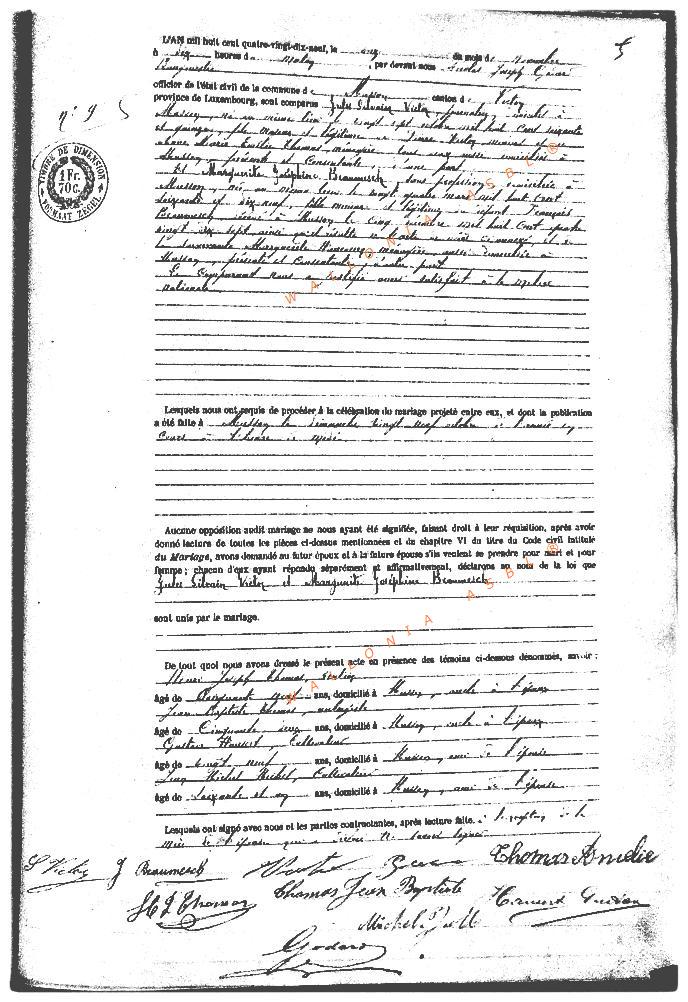 5
L'AN mil huit cent quatre-vingt-dix-neuf, le onze du mois de Novembre
à dix heures du matin, par devant nous Nicolas Joseph
Bourgmestre
officier de l'état civil de la commune de Musson canton de Virton
province de Luxembourg, sont comparus Jules Silvain Victor, journalier, domicilié à
n° 9 5
TIMBRE DE DIMENSION
1 Fr. 70 c.
FORMAAT ZEGEL
Musson, né au même lieu le vingt sept octobre mil huit cent soixante
et quinze, fils majeur et légitime de Victor
Anne Marie Emilie Thomas, ménagère, tous deux aussi domiciliés à
Musson, présents et consentants, d'une part,
Et Marguerite Joséphine Braumesch, sans profession, domiciliée à
Musson, née au même lieu le vingt quatre mars mil huit cent
soixante et dix neuf, fille mineure et légitime de François
Braumesch, décédé à Musson le cinq mil huit cent quatre
vingt dix sept ainsi qu'il résulte de l'acte ci annexé, et de
la survivante Marguerite ménagère, aussi domiciliée à
Musson, présente et consentante, d'autre part
Le comparant nous a justifié avoir satisfait à la milice
nationale
Lesquels nous ont requis de procéder à la célébration du mariage projeté entre eux, et dont la publication
a été faite à Musson le dimanche vingt neuf octobre de l'année en
cours à l'heure de midi
Aucune opposition audit mariage ne nous ayant été signifiée, faisant droit à leur réquisition, après avoir
donné lecture de toutes les pièces ci-dessus mentionnées et du chapitre VI du titre du Code civil intitulé
du Mariage, avons demandé au futur époux et à la future épouse s'ils veulent se prendre pour mari et pour
femme ; chacun d'eux ayant répondu séparément et affirmativement, déclarons au nom de la loi que
Jules Silvain Victor et Marguerite Joséphine Braumesch
sont unis par le mariage.
De tout quoi nous avons dressé le présent acte en présence des témoins ci-dessous dénommés, savoir :
Henri Joseph Thomas, rentier
âgé de Cinquante neuf ans, domicilié à Musson, oncle à l'époux
Jean Baptiste Thomas, aubergiste
âgé de Cinquante deux ans, domicilié à Musson, oncle à l'époux
Gustave Cultivateur
âgé de vingt neuf ans, domicilié à Musson, ami de l'épouse
Jean Michel Cultivateur
âgé de soixante et un ans, domicilié à Musson, ami de l'épouse
Lesquels ont signé avec nous et les parties contractantes, après lecture faite, à l'exception de la
mère de l'épouse qui a déclaré ne savoir signer
J Braumesch Thomas Amelie
H J Thomas Thomas Jean Baptiste
Michel
WALLONIA ASBL®
WALLONIA ASBL®